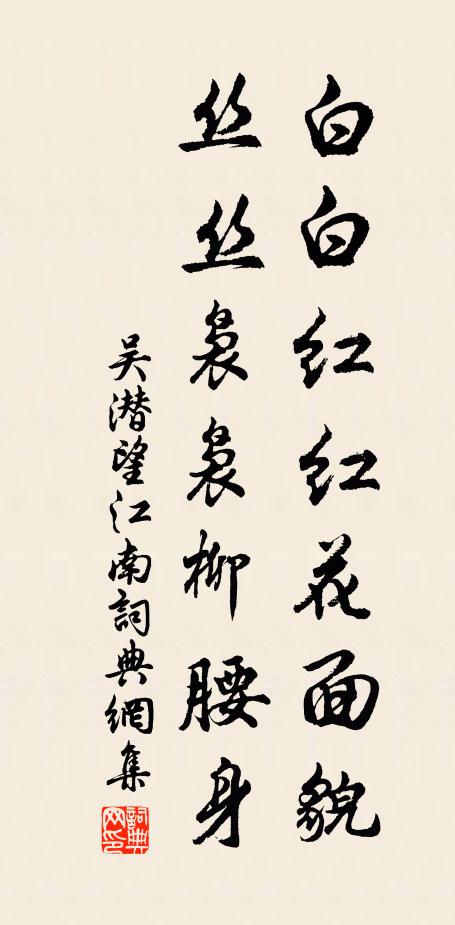 白白红红花面貌
丝丝袅袅柳腰身
吴潜望江南詞典網集
詞典
网印